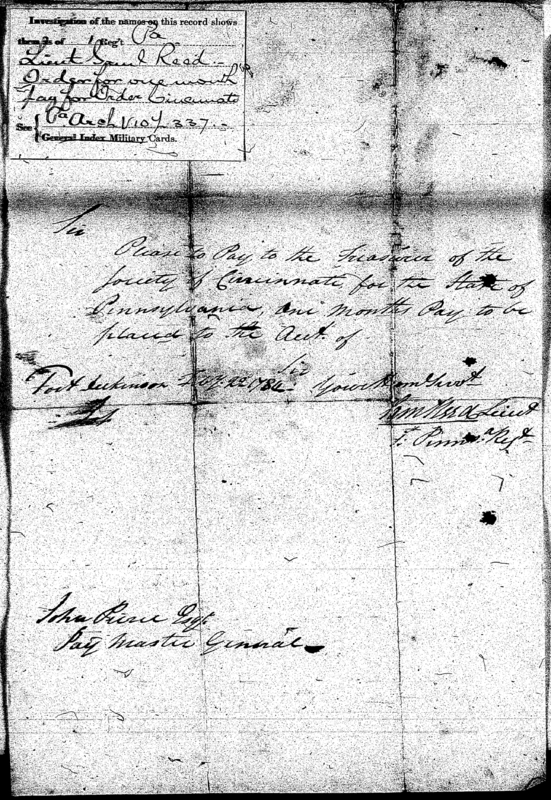 Investigation of the names on this record shows
them as of 1 Reg't Pa
Lieut Saml Read.-
Order for one month
pay for Order Cincinnati
See Pa Arch V 10 p 337.-
General Index Military Cards.
Sir
Please to Pay to the Treasurer of the
Society of Cincinnati for the State of
Pennsylvania, one Months Pay to be
placed to the Acct. of
Sir
Fort 22 1784 Your Hum Servt
Lieut
Pennsa. Regt
John Pierce Esqr
Pay Master General